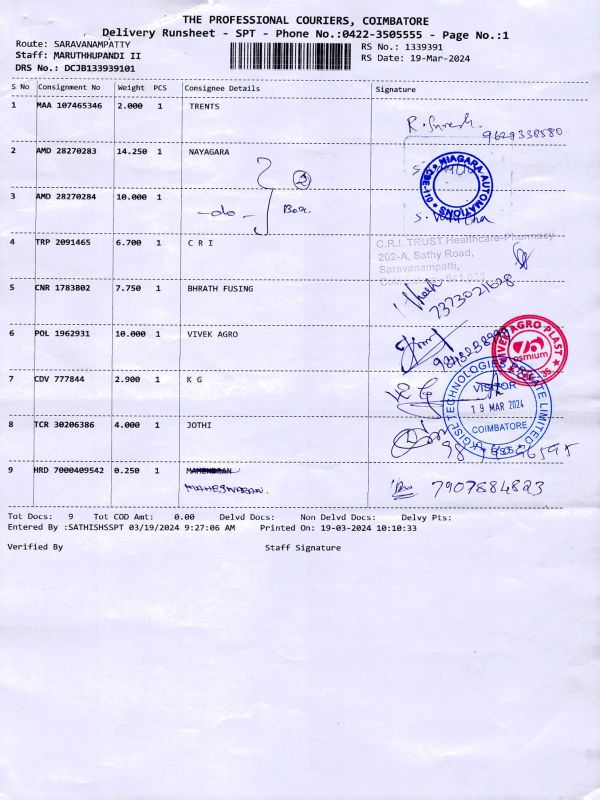 THE PROFESSIONAL COURIERS, COIMBATORE
Delivery Runsheet - SPT - Phone No.:0422-3505555 - Page No.:1
Route: SARAVANAMPATTY
Staff: MARUTHHUPANDI II
DRS No.: DCJB133939101
RS No.: 1339391
RS Date: 19-Mar-2024
S No Consignment No Weight PCS Consignee Details Signature
1 MAA 107465346 2.000 1 TRENTS
R. Suresh
9629338580
2 AMD 28270283 14.250 1 NAYAGARA
2
NIAGARA AUTOMATIONS
3 AMD 28270284 10.000 1
-do- Box.
4 TRP 2091465 6.700 1 C R I
C.R.I. TRUST Healthcare-Pharmacy
202-A, Sathy Road,
Saravanampatti,
5 CNR 1783802 7.750 1 BHRATH FUSING
7373021628
6 POL 1962931 10.000 1 VIVEK AGRO
VIVEK AGRO PLAST
osmium
7 CDV 777844 2.900 1 K G
KGISL TECHNOLOGIES PRIVATE LIMITED
VISITOR
19 MAR 2024
COIMBATORE
8 TCR 30206386 4.000 1 JOTHI
9 HRD 7000409542 0.250 1 MAHENDRAN
MAHESWARAN.
7907884823
Tot Docs: 9 Tot COD Amt: 0.00 Delvd Docs: Non Delvd Docs: Delvy Pts:
Entered By :SATHISHSSPT 03/19/2024 9:27:06 AM Printed On: 19-03-2024 10:10:33
Verified By Staff Signature